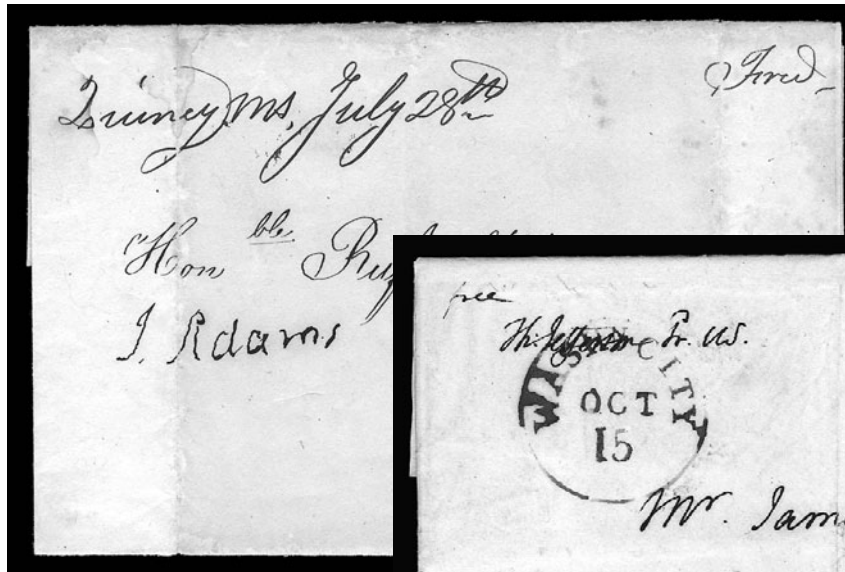 Quincy, Ms, July 28th
Free
Hon ble
J. Adams
free
Th: Jefferson Pr. US.
WASH. CITY
OCT
15
Mr. Jam